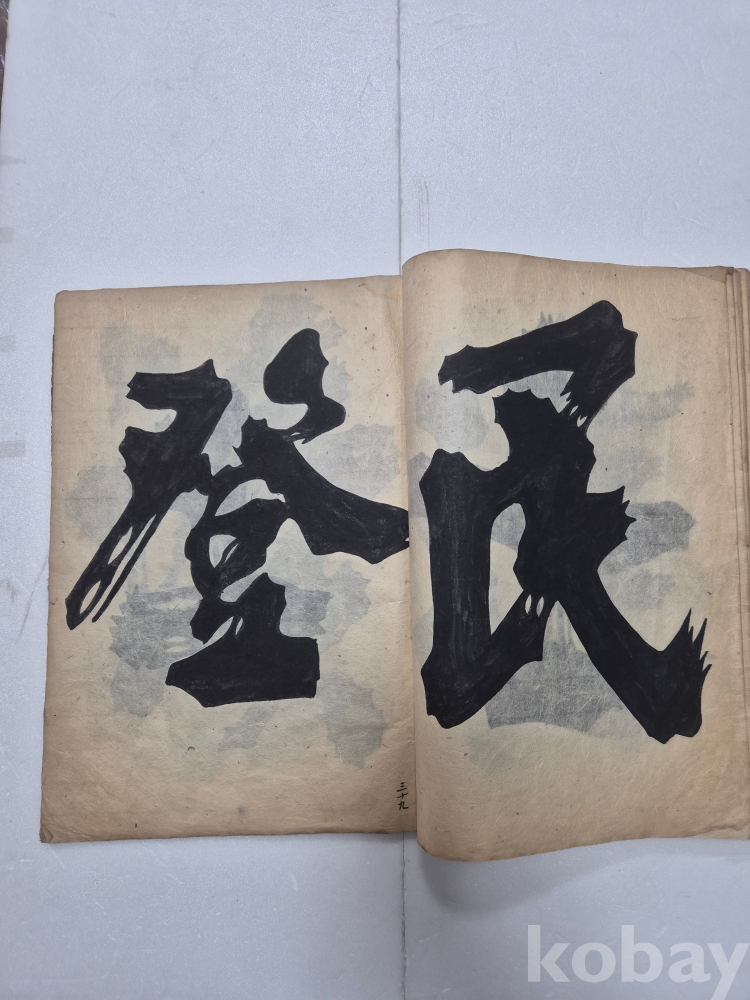 民
登
三十九
kobay